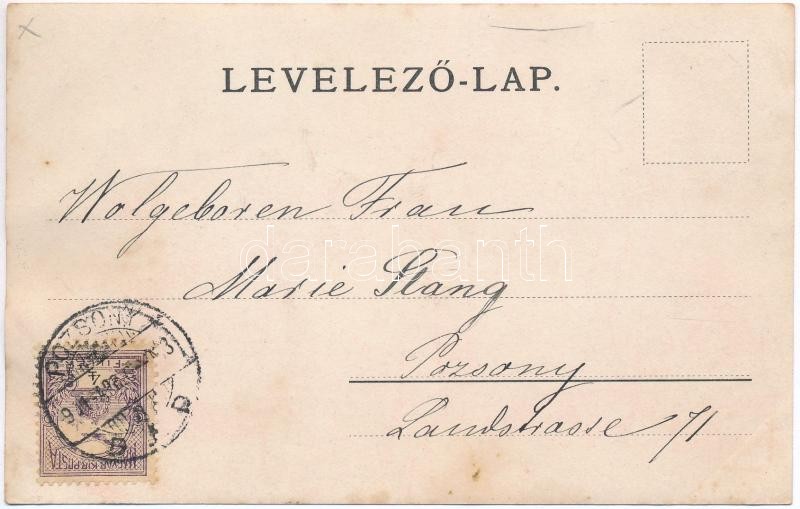 LEVELEZŐ-LAP.
Wolgeboren Frau
Marie Stang
Pozsony
Landstrasse 71
darabanth
POZSONY
MAGYAR KIR. POSTA